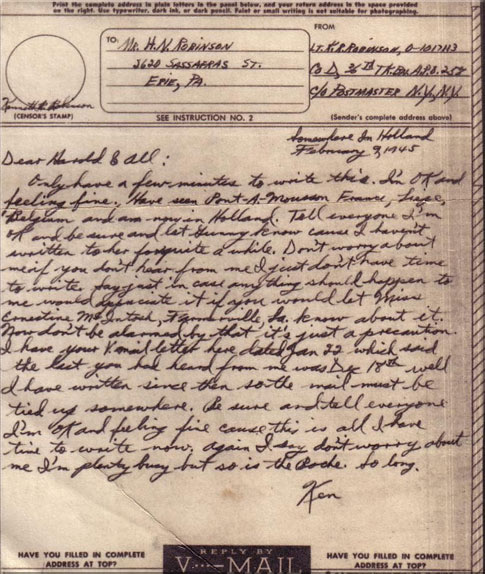 Print the complete address in plain letters in the panel below, and your return address in the space provided
on the right. Use typewriter, dark ink, or dark pencil. Faint or small writing is not suitable for photographing.
TO: Mr. H. N. Robinson
3620 Sassafras St.
Erie, Pa.
FROM
Lt. K. R. Robinson, O-1017113
Co D, 36th Tk. Bn. A.P.O. 258
C/O Postmaster N.Y., N.Y.
Kenneth R. Robinson
(CENSOR'S STAMP)
SEE INSTRUCTION NO. 2
(Sender's complete address above)
Somewhere In Holland
February 9, 1945
Dear Harold & All:
Only have a few minutes to write this. I'm OK and
feeling fine. Have seen Pont-A-Mousson France, Liege,
Belgium and am now in Holland. Tell everyone I'm
OK and be sure and let know cause I haven't
written to her for quite a while. Don't worry about
me if you don't hear from me I just don't have time
to write. Say just in case anything should happen to
me would you let Miss
McIntosh, Farmerville, La. know about it.
Now don't be alarmed by that, it's just a precaution.
I have your V-mail letter here dated Jan 22 which said
the last you had heard from me was Dec 18th well
I have written since then so the mail must be
tied up somewhere. Be sure and tell everyone
I'm OK and feeling fine cause this is all I have
time to write now. again I say don't worry about
me I'm plenty busy but so is the Boche. So long.
Ken
HAVE YOU FILLED IN COMPLETE
ADDRESS AT TOP?
REPLY BY
V···—MAIL
HAVE YOU FILLED IN COMPLETE
ADDRESS AT TOP?